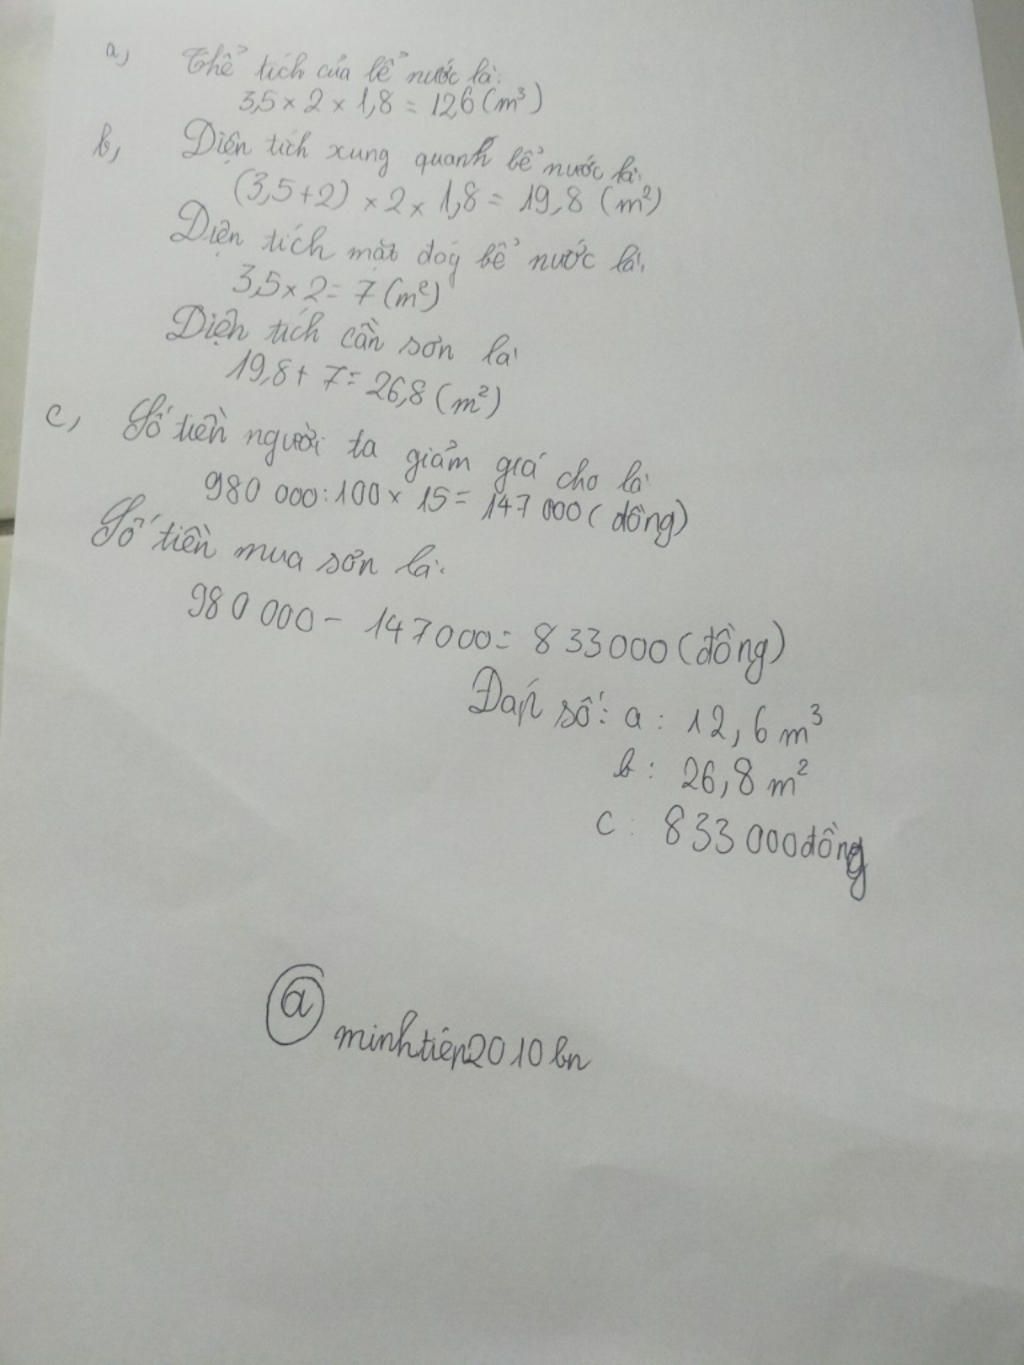 a, Thể tích của bể nước là:
3,5 × 2 × 1,8 = 12,6 (m³)
b, Diện tích xung quanh bể nước là:
(3,5+2) × 2 × 1,8 = 19,8 (m²)
Diện tích mặt đáy bể nước là:
3,5 × 2 = 7 (m²)
Diện tích cần sơn là
19,8 + 7 = 26,8 (m²)
c, Số tiền người ta giảm giá cho là
980 000 : 100 × 15 = 147 000 (đồng)
Số tiền mua sơn là:
980 000 - 147 000 = 833 000 (đồng)
Đáp số: a : 12,6 m³
b : 26,8 m²
c : 833 000 đồng
@ minhtiến2010bn